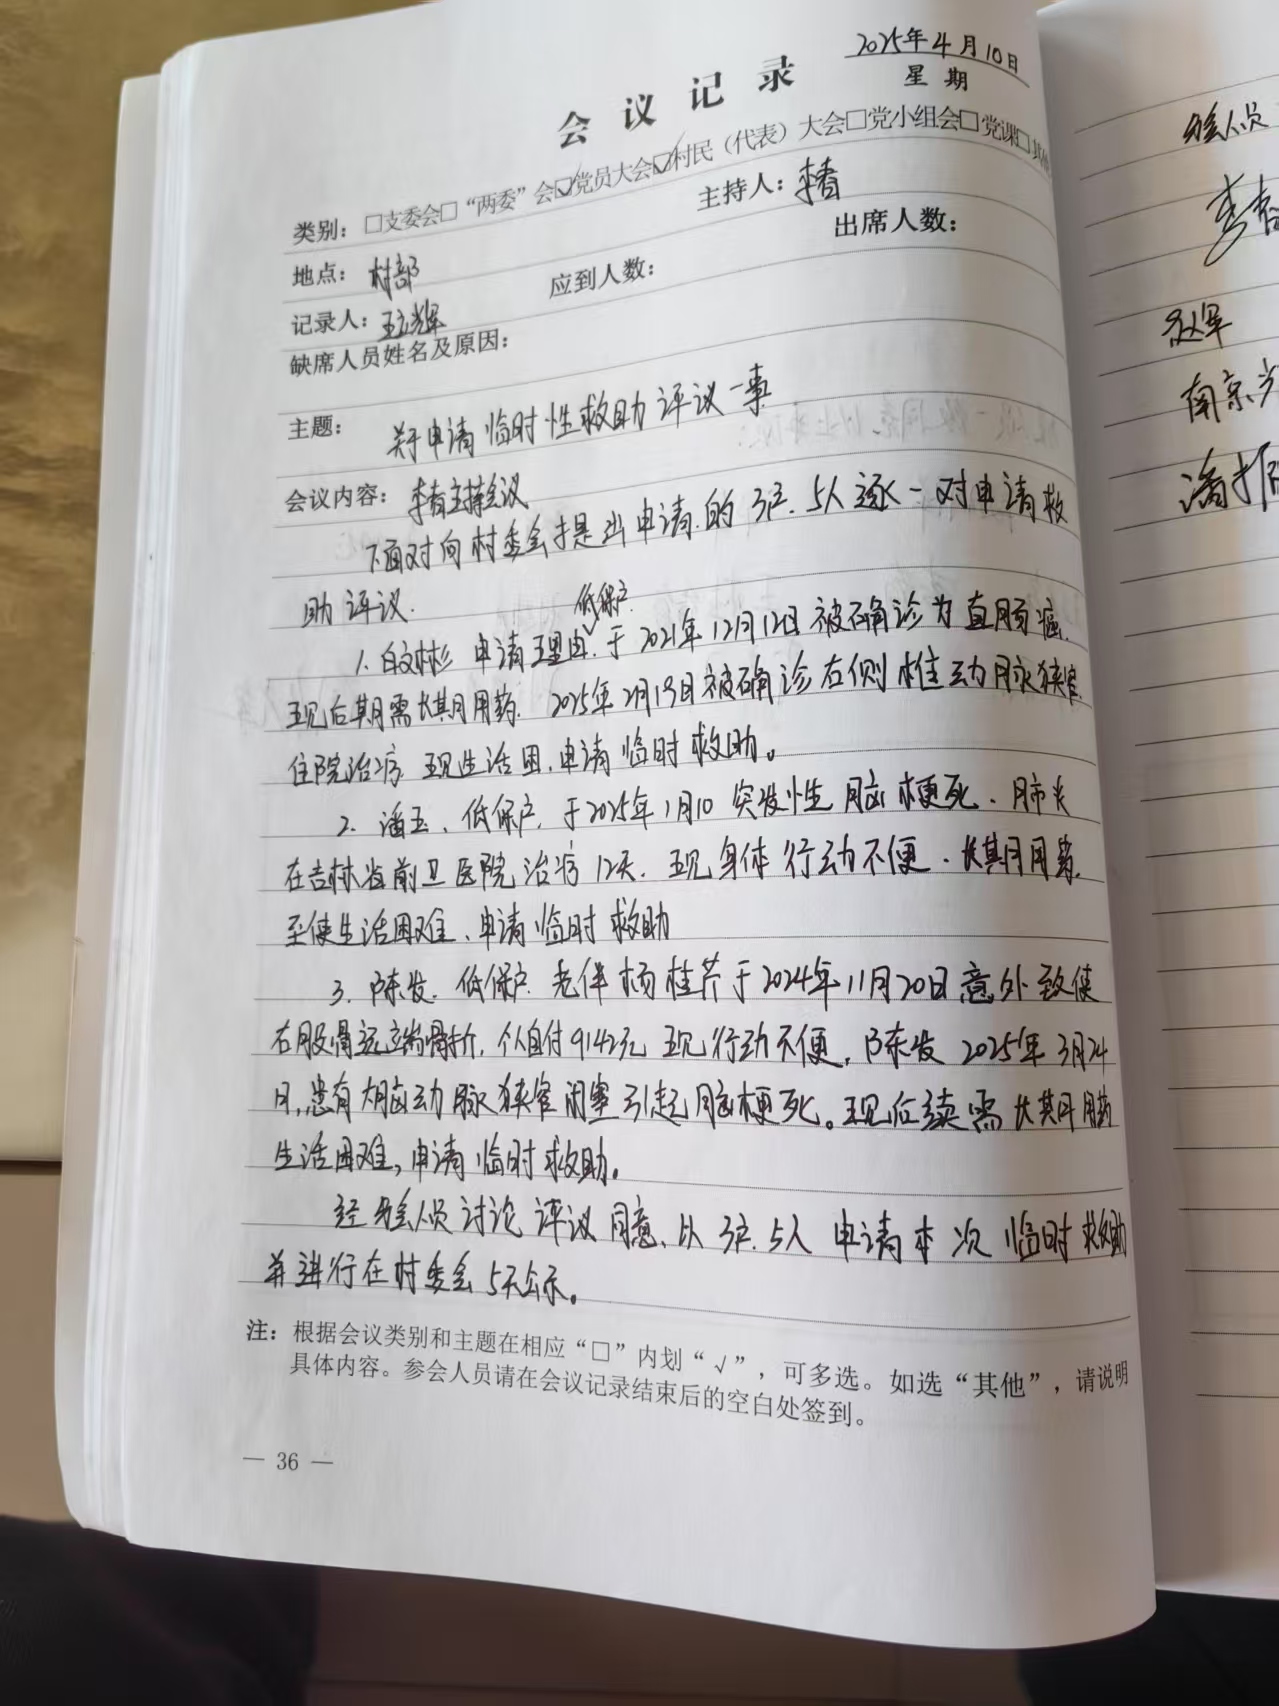 2025年4月10日
星期
会议记录
类别：□支委会□“两委”会☑党员大会☑村民（代表）大会□党小组会□党课□其他
地点：村部 主持人：李春
记录人：王立辉 应到人数： 出席人数：
缺席人员姓名及原因：
主题：关于申请临时性救助评议一事
会议内容：李春主持会议
下面对向村委会提出申请的3户.5人逐一对申请救
助评议.
低保户.
1.白文彬 申请理由.于2021年12月12日被确诊为直肠癌.
现后期需长期用药. 2025年2月19日被确诊右侧椎动脉狭窄.
住院治疗 现生活困.申请临时救助。
2.潘玉、低保户.于2025年1月10突发性脑梗死、肺炎
在吉林省前卫医院治疗12天.现身体行动不便.长期用药.
至使生活困难、申请临时救助
3.陈发.低保户.老伴杨桂芹于2024年11月20日意外致使
右股骨远端骨折.个人自付9142元 现行动不便.陈发2025年3月24
日,患有大脑动脉狭窄闭塞引起脑梗死。现后续需长期用药
生活困难,申请临时救助。
经参会人员讨论评议同意、以3户.5人申请本次临时救助
并进行在村委会5天公示。
注：根据会议类别和主题在相应“□”内划“√”，可多选。如选“其他”，请说明
具体内容。参会人员请在会议记录结束后的空白处签到。
— 36 —
参会人员
李春
赵军
南京
潘振